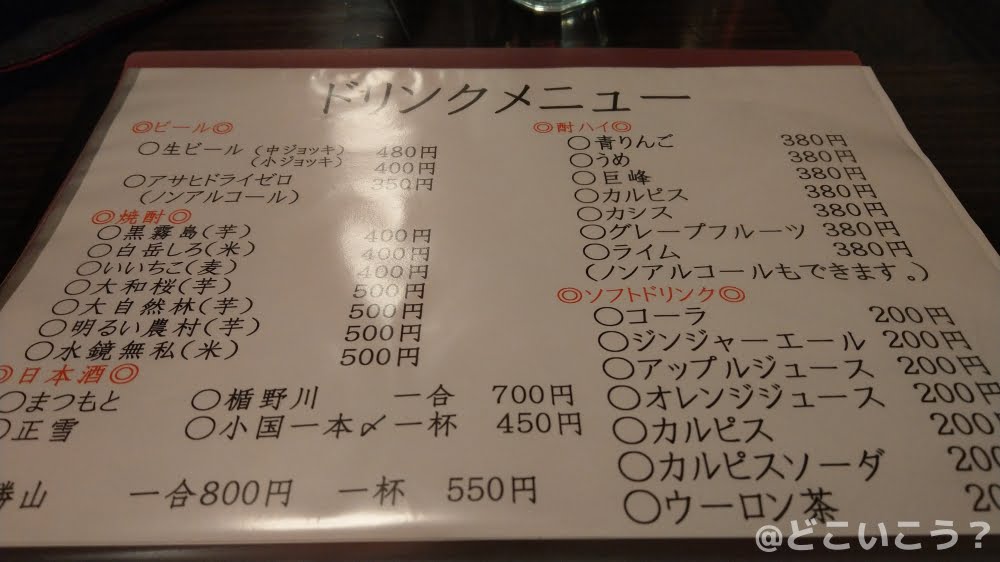 ドリンクメニュー
◎ビール◎
○生ビール(中ジョッキ) 480円
(小ジョッキ) 400円
○アサヒドライゼロ 350円
(ノンアルコール)
◎焼酎◎
○黒霧島(芋) 400円
○白岳しろ(米) 400円
○いいちこ(麦) 400円
○大和桜(芋) 500円
○大自然林(芋) 500円
○明るい農村(芋) 500円
○水鏡無私(米) 500円
◎日本酒◎
○まつもと ○楯野川 一合 700円
○正雪 ○小国一本〆 一杯 450円
勝山 一合800円 一杯 550円
◎酎ハイ◎
○青りんご 380円
○うめ 380円
○巨峰 380円
○カルピス 380円
○カシス 380円
○グレープフルーツ 380円
○ライム 380円
(ノンアルコールもできます。)
◎ソフトドリンク◎
○コーラ 200円
○ジンジャーエール 200円
○アップルジュース 200円
○オレンジジュース 200円
○カルピス 200
○カルピスソーダ 200
○ウーロン茶 20
@どこいこう?